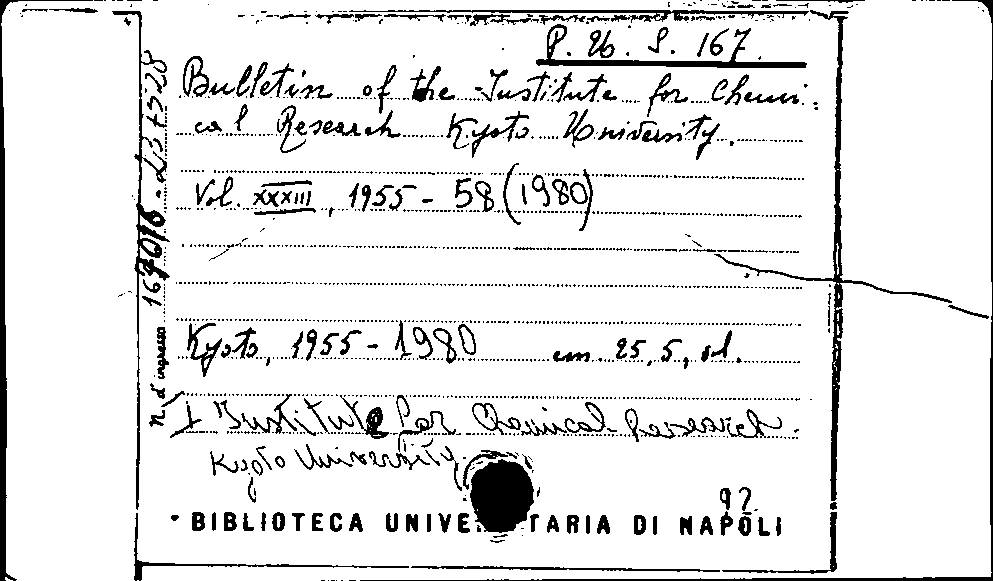 P. Ub. S. 167.
Bulletin of the Institute for Chemi=
cal Research Kyoto University.
Vol. XXXIII, 1955 - 58 (1980)
Kyoto, 1955 - 1980 cm. 25,5, ol.
I Institute for Chemical Research.
Kyoto University.
92
BIBLIOTECA UNIVE TARIA DI NAPOLI
N. d'ingresso